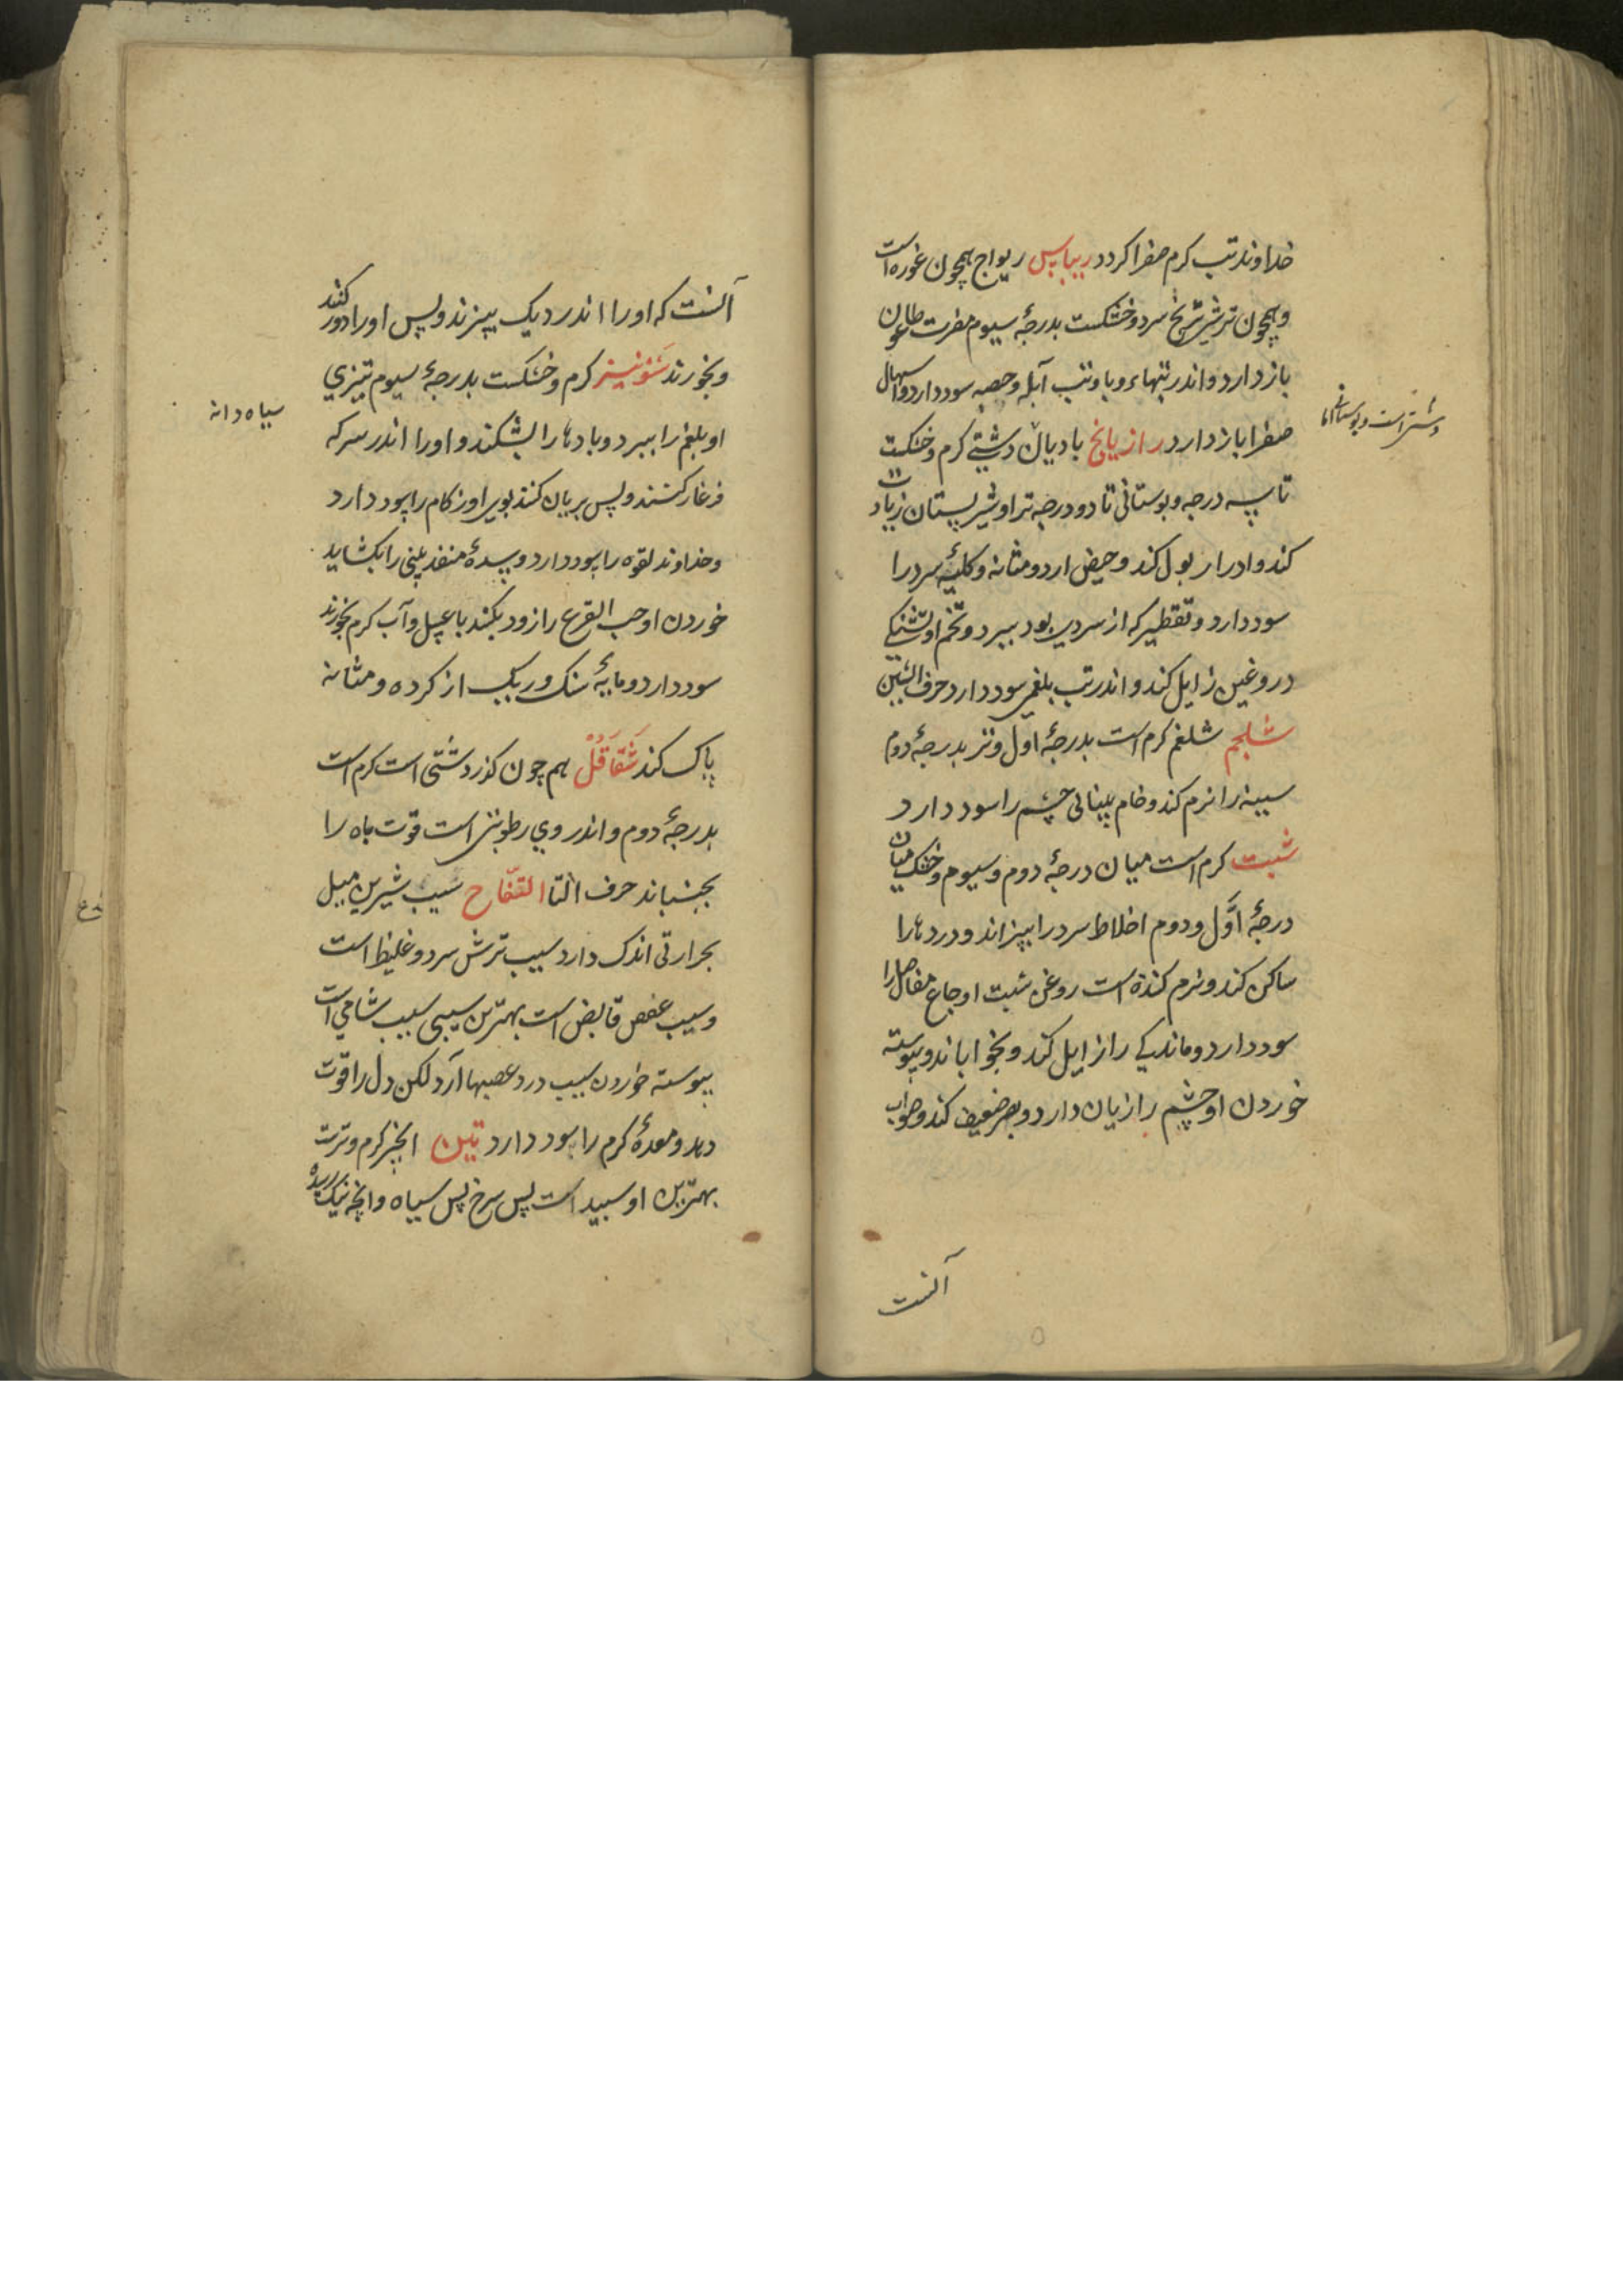 خداوند تب کرم صفرا کردد ریباس ریواج همچون غوره است
و همچون ترشی ترنج سرد و خشکست بدرجهٔ سیوم مضرت طاعون
باز دارد و اندر تبهاء وبا و تب آبله و حصبه سود دارد و اسهال
صفرا باز دارد رازیانج بادیان دشتی کرم و خشکست
تا سه درجه و بوستانی تا دو درجه تر او شیر پستان زیادت
کند و ادرار بول کند و حیض ارد و مثانه و کلیهٔ سرد را
سود دارد و تقطیر که از سردی بود ببرد و تخم او تشنکی
دروغین زایل کند و اندر تب بلغمی سود دارد حرف الشین
شلجم شلغم کرم است بدرجهٔ اوّل و تر بدرجهٔ دوم
سینه را نرم کند و خام بینائی چشم را سود دارد
شبت کرم است میان درجهٔ دوم و سیوم و خشک میان
درجهٔ اوّل و دوم اخلاط سرد را بپزاند و دردها را
ساکن کند و نرم کننده است روغن شبت اوجاع مفاصل را
سود دارد و ماندکی را زایل کند و بخواباند و پیوسته
خوردن او چشم را زیان دارد و بصر ضعیف کند و صواب
آنست
آنست که او را اندر دیک بپزند و پس او را دور کنند
و بخورند شونیز کرم و خشکست بدرجهٔ سیوم تیزی
سیاه دانه
او بلغم را ببرد و بادها را بشکند و او را اندر سرکه
فرغار کنند و پس بریان کنند بوی او زکام را سود دارد
و خداوند لقوه را سود دارد و سدهٔ منفذ بینی را بکشاید
خوردن او حب القرع را زود بکشد با عسل و آب کرم بخورند
سود دارد و مایهٔ سنک و ریک از کرده و مثانه
پاک کند شقاقل هم چون کزر دشتی است کرم است
بدرجهٔ دوم و اندر وی رطوبتی است قوت باه را
بجنباند حرف التا التفّاح سیب شیرین میل
بحرارتی اندک دارد سیب ترش سرد و غلیظ است
و سیب عفص قابض است بهترین سیبی سیب شامی است
پیوسته خوردن سیب درد عصبها آرد لکن دل را قوت
دهد و معدهٔ کرم را سود دارد تین انجیر کرم و ترست
بهترین او سپید است پس سرخ پس سیاه و انچه نیک رسیده